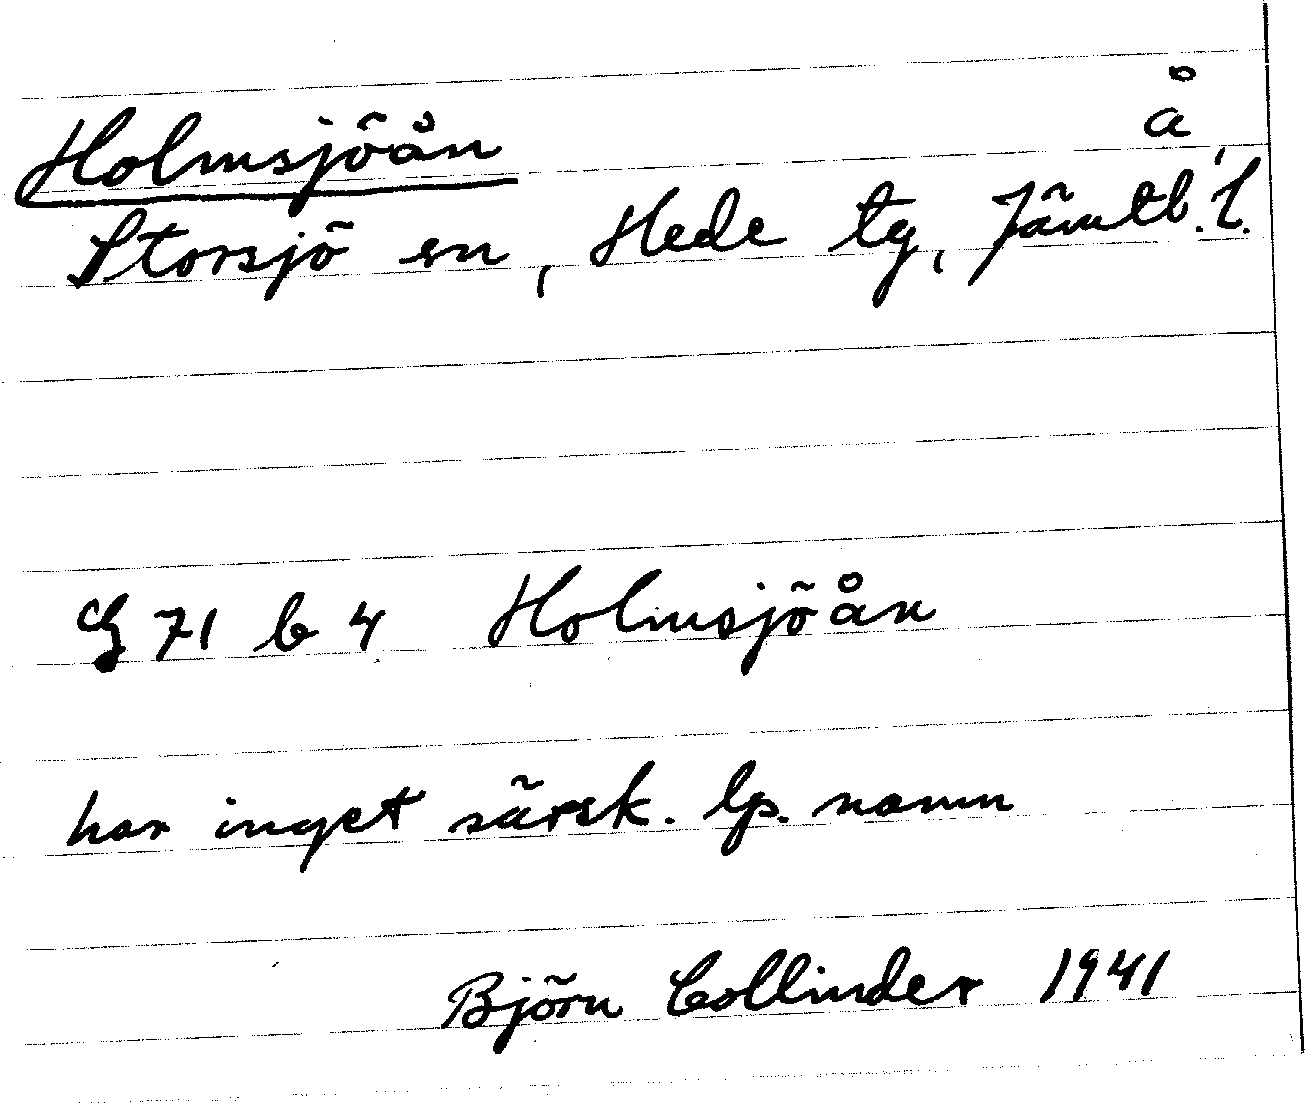 Holmsjöån å
Storsjö sn, Hede tg, Jämtl. l.
G 71 b 4 Holmsjöån
har inget särsk. lp. namn
Björn Collinder 1941